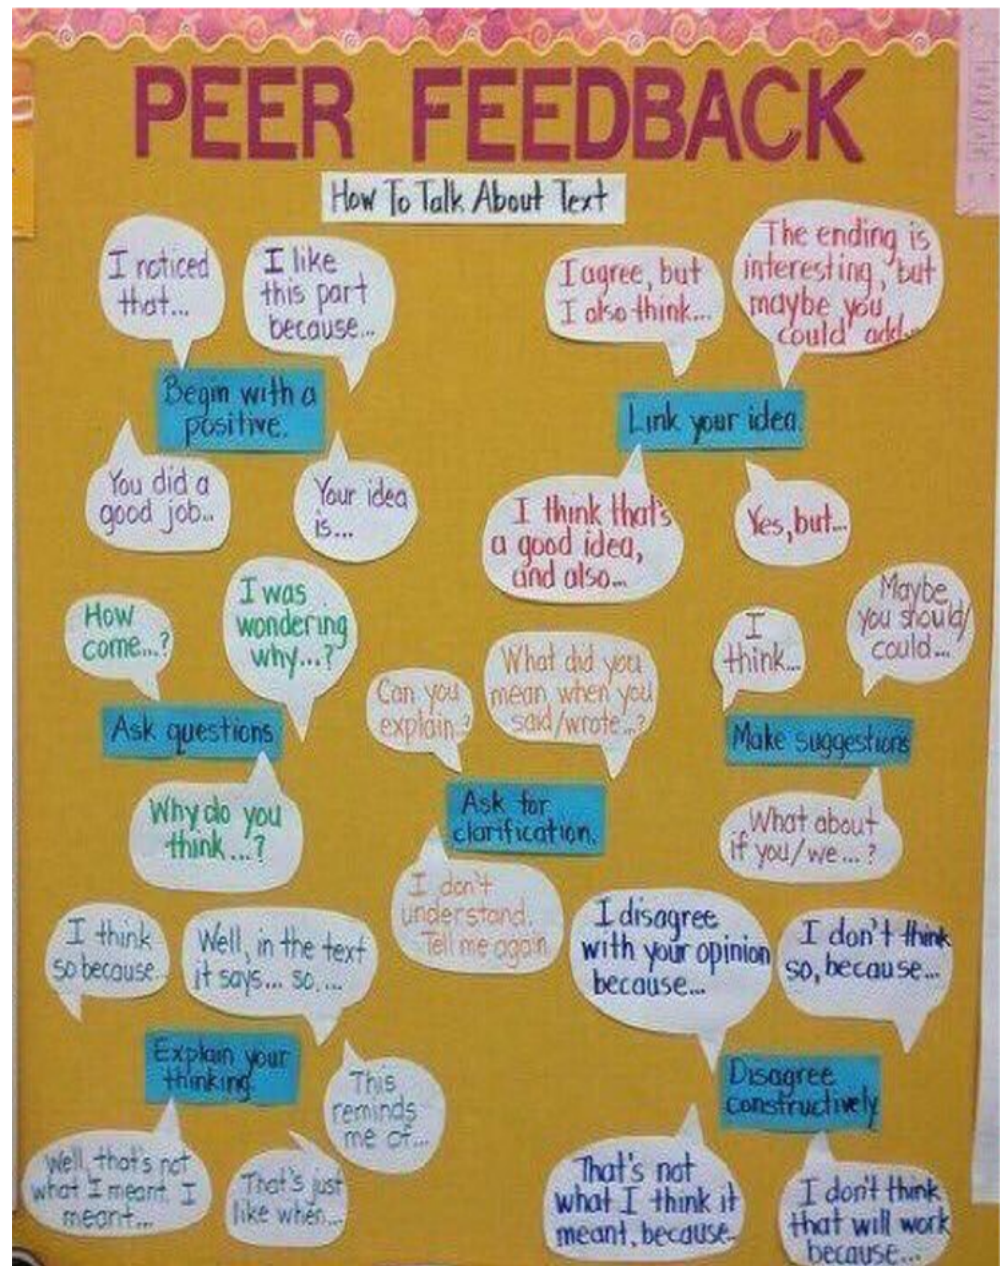 PEER FEEDBACK
How To Talk About Text
I noticed
that...
I like
this part
because...
Begin with a
positive.
You did a
good job...
Your idea
is...
I agree, but
I also think...
The ending is
interesting, but
maybe you
could add...
Link your idea.
I think that's
a good idea,
and also...
Yes, but...
How
come...?
I was
wondering
why...?
Ask questions
Why do you
think...?
Can you
explain..?
What did you
mean when you
said/wrote...?
Ask for
clarification.
I don't
understand.
Tell me again
I
think...
Maybe
you should/
could...
Make suggestions
What about
if you/we...?
I think
so because...
Well, in the text
it says... so....
Explain your
thinking.
This
reminds
me of...
Well, that's not
what I meant. I
meant...
That's just
like when...
I disagree
with your opinion
because...
I don't think
so, because...
Disagree
constructively
That's not
what I think it
meant, because...
I don't think
that will work
because...